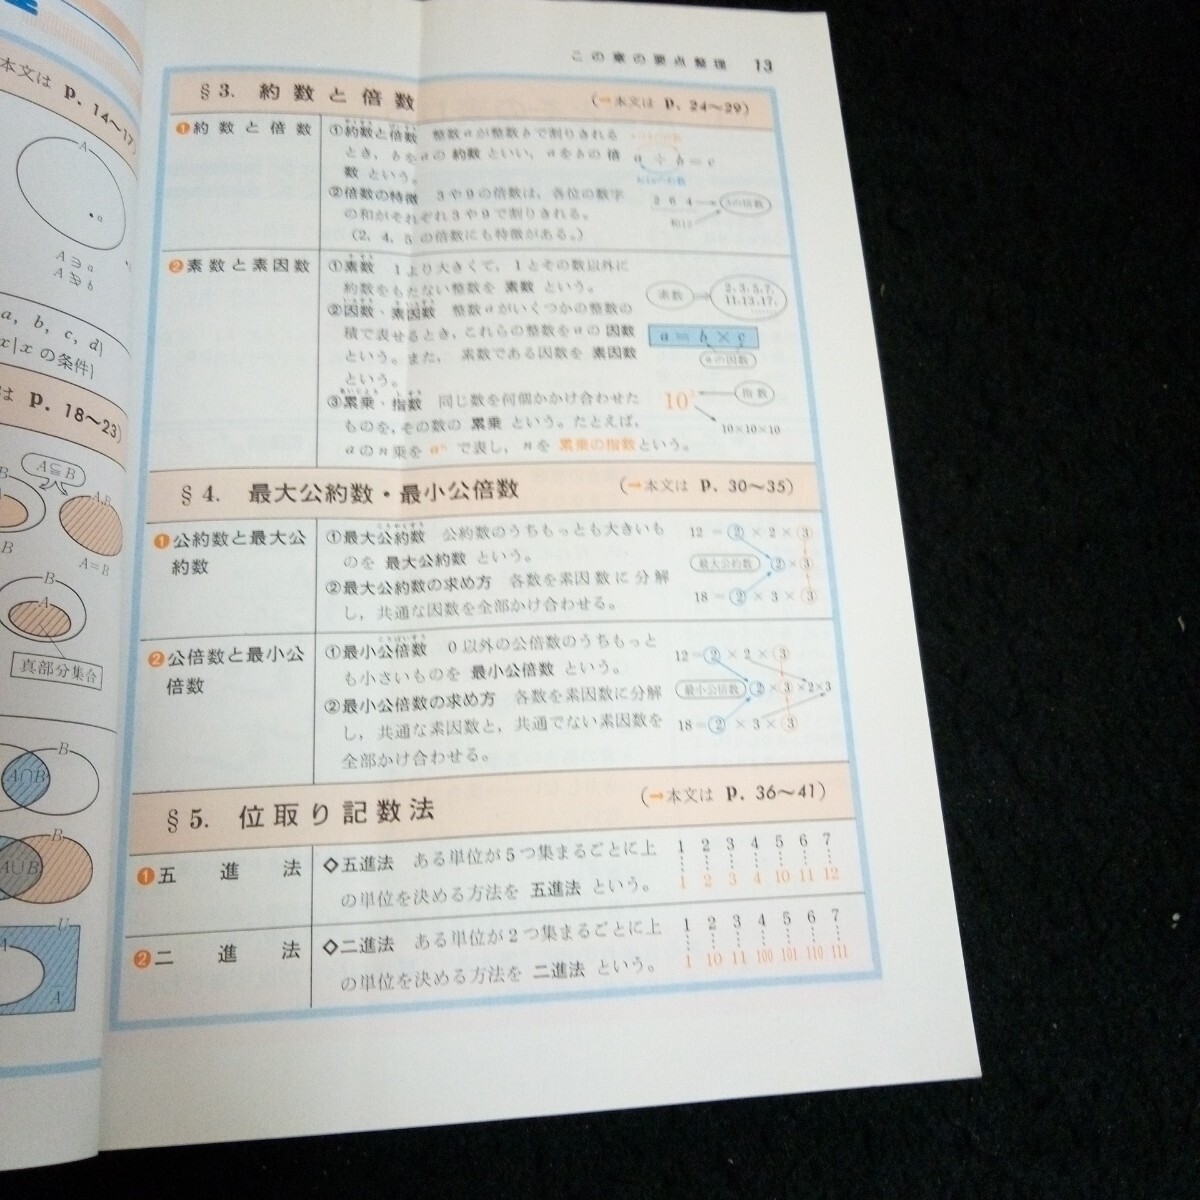 この章の要点整理 13
§3. 約数と倍数 (→本文は p. 24〜29)
❶約数と倍数
①約数と倍数 整数aが整数bで割りきれる
とき, bをaの 約数 といい, aをbの 倍
数 という。
a ÷ b = c
②倍数の特徴 3や9の倍数は, 各位の数字
の和がそれぞれ3や9で割りきれる。
(2, 4, 5 の倍数にも特徴がある。)
2 6 4
和12
3の倍数
❷素数と素因数
①素数 1より大きくて, 1とその数以外に
約数をもたない整数を 素数 という。
素数
2,3,5,7,
11,13,17,
②因数・素因数 整数aがいくつかの整数の
積で表せるとき, これらの整数をaの 因数
という。また, 素数である因数を 素因数
という。
a = b × c
aの因数
③累乗・指数 同じ数を何個かかけ合わせた
ものを, その数の 累乗 という。たとえば,
aのn乗を aⁿ で表し, nを 累乗の指数という。
10³
指数
10×10×10
§4. 最大公約数・最小公倍数 (→本文は p. 30〜35)
❶公約数と最大公
約数
①最大公約数 公約数のうちもっとも大きいも
のを 最大公約数 という。
②最大公約数の求め方 各数を素因数に分解
し, 共通な因数を全部かけ合わせる。
12 = ② × 2 × ③
最大公約数 ② × ③
18 = ② × 3 × ③
❷公倍数と最小公
倍数
①最小公倍数 0以外の公倍数のうちもっと
も小さいものを 最小公倍数 という。
②最小公倍数の求め方 各数を素因数に分解
し, 共通な素因数と, 共通でない素因数を
全部かけ合わせる。
12 = ② × 2 × ③
最小公倍数 ② × ③ × 2×3
18 = ② × 3 × ③
§5. 位取り記数法 (→本文は p. 36〜41)
❶五進法
◇五進法 ある単位が5つ集まるごとに上
の単位を決める方法を 五進法 という。
1 2 3 4 5 6 7
1 2 3 4 10 11 12
❷二進法
◇二進法 ある単位が2つ集まるごとに上
の単位を決める方法を 二進法 という。
1 2 3 4 5 6 7
1 10 11 100 101 110 111
本文は p. 14〜17)
A
a
A∋a
A∌b
a, b, c, d}
x|xの条件}
は p. 18〜23)
A⊆B
A,B
B
A=B
B
A
真部分集合
B
A∩B
B
A∪B
U
A